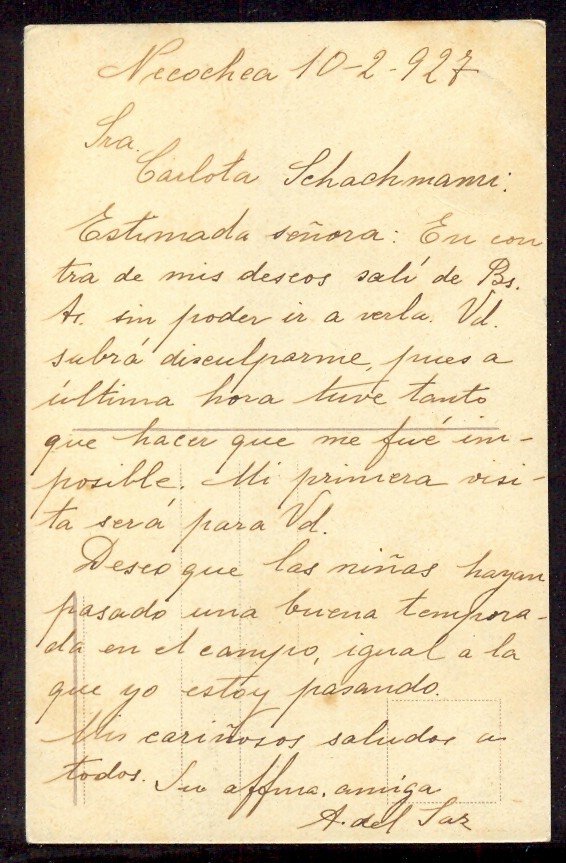 Necochea 10-2-927
Sra.
Carlota Schachmann:
Estimada señora: En con
tra de mis deseos salí de Bs.
As. sin poder ir a verla. Vd.
sabrá disculparme, pues a
última hora tuve tanto
que hacer que me fué im-
posible. Mi primera visi-
ta será para Vd.
Deseo que las niñas hayan
pasado una buena tempora-
da en el campo, igual a la
que yo estoy pasando.
Mis cariñosos saludos a
todos. Su affma. amiga
A. del Saz